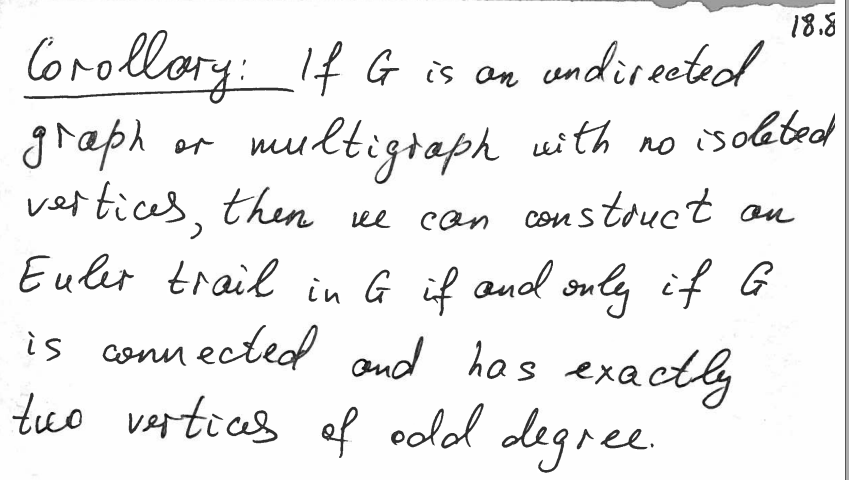 18.8
Corollary: If G is an undirected
graph or multigraph with no isolated
vertices, then we can construct an
Euler trail in G if and only if G
is connected and has exactly
two vertices of odd degree.